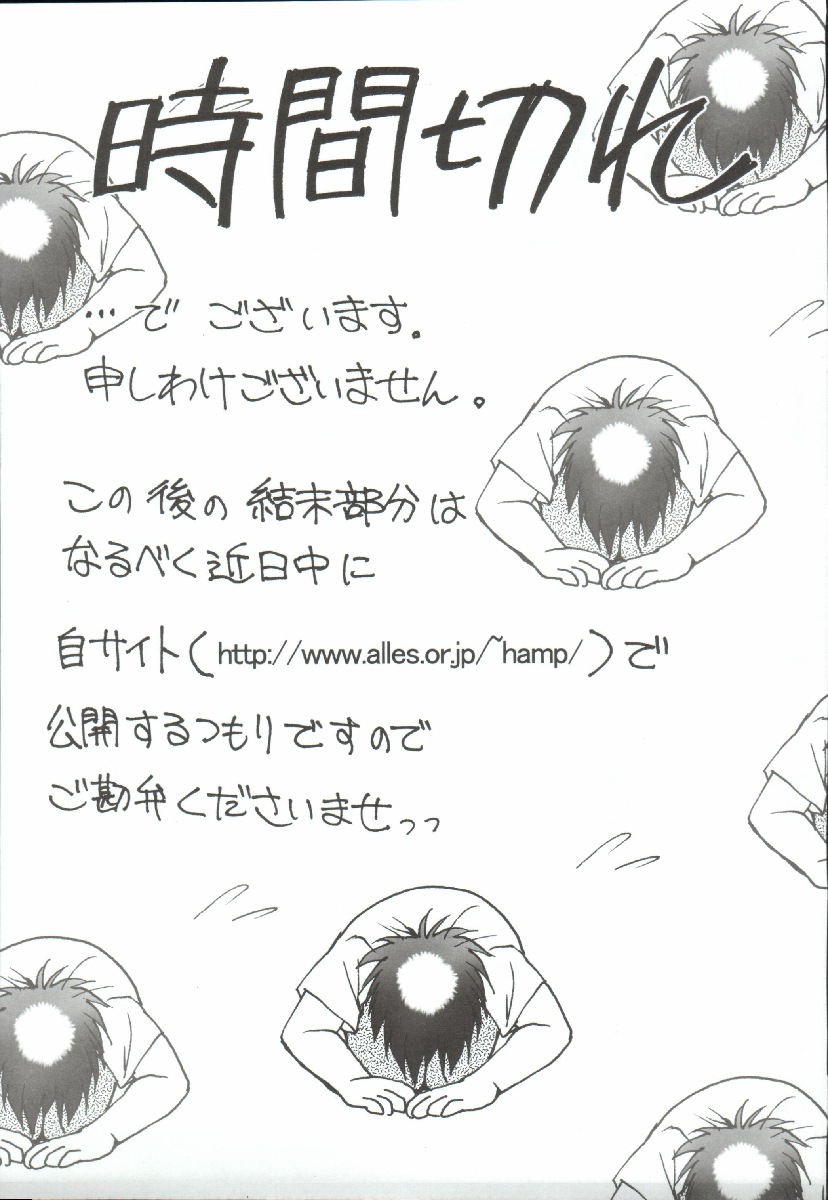 時間切れ
…で ございます。
申しわけございません。
この後の結末部分は
なるべく近日中に
自サイト(http://www.alles.or.jp/~hamp/)で
公開するつもりですので
ご勘弁くださいませっっ